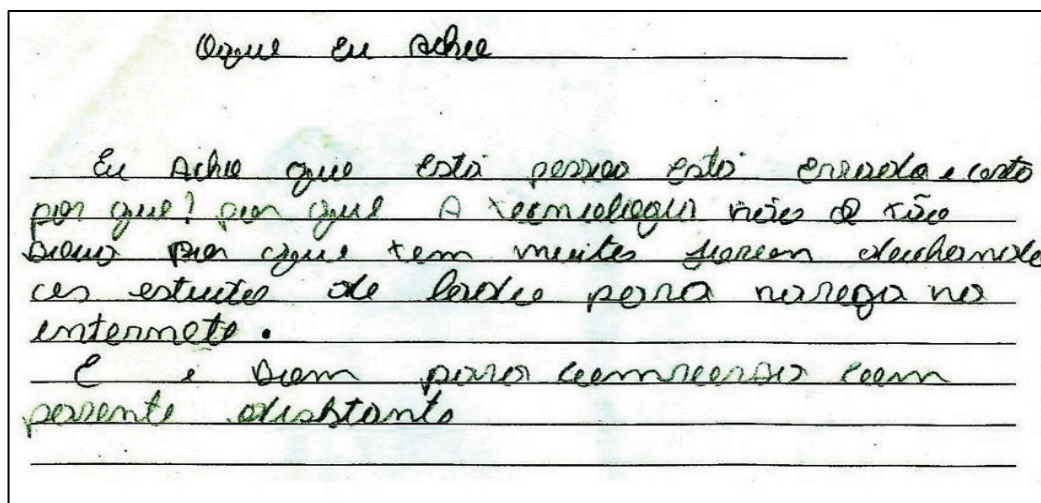 Oque eu Acho
Eu Acho que está pessoa está errada e certo
por que? por que A tecnologia não é tão
por que tem muitos jovem
os estudos de lado para navega na
internete.
E é bom para conversar com
parente distante